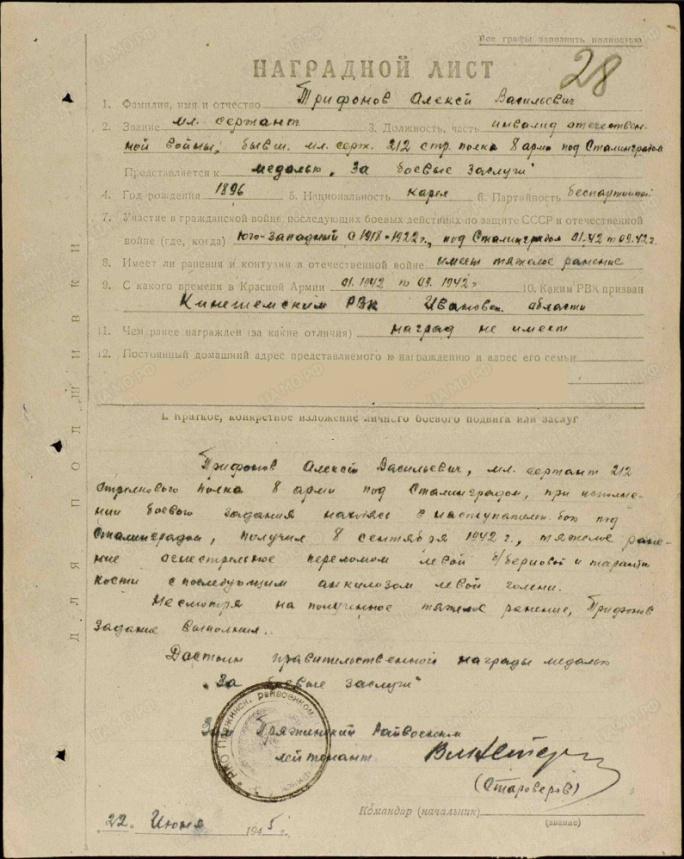 Все графы заполнять полностью
НАГРАДНОЙ ЛИСТ
28
1. Фамилия, имя и отчество Трифонов Алексй Васильевич
2. Звание мл. сержант 3. Должность, часть инвалид отечествен-
ной войны, бывш. мл. серж. 212 стр. полка 8 арми под Сталинградом
Представляется к медалью „За боевые заслуги"
4. Год рождения 1896 5. Национальность карел 6. Партийность беспартийный
7. Участие в гражданской войне, последующих боевых действиях по защите СССР и отечественной
войне (где, когда) Юго-Западный с 1918-1922 г., под Сталинградом 01.42 по 09.42 г.
8. Имеет ли ранения и контузии в отечественной войне имеет тяжелое ранение
9. С какого времени в Красной Армии 01.1942 по 09.1942 г 10. Каким РВК призван
Кинешемским РВК Ивановск. области
11. Чем ранее награжден (за какие отличия) наград не имеет
12. Постоянный домашний адрес представляемого к награждению и адрес его семьи
I. Краткое, конкретное изложение личного боевого подвига или заслуг
Трифонов Алексй Васильевич, мл. сержант 212
стрелкового полка 8 арми под Сталинградом, при исполне-
нии боевого задания находясь в наступательн. бою под
Сталинградом, получил 8 сентября 1942 г., тяжелое ране-
ние огнестрельное переломом левой б/берцовой и
кости с последующим анкилозом левой голени.
Несмотря на полученное тяжелое ранение, Трифонов
задание выполнил.
Достоин правительственной награды медалью
„За боевые заслуги"
Пряжинский Райвоенком
лейтенант
(Староверов)
Командир (начальник)
(звание)
22 Июня 1945 г.
ДЛЯ ПОДШИВКИ
НКО Пряжинск. райвоенком
ЦАМО.РФ